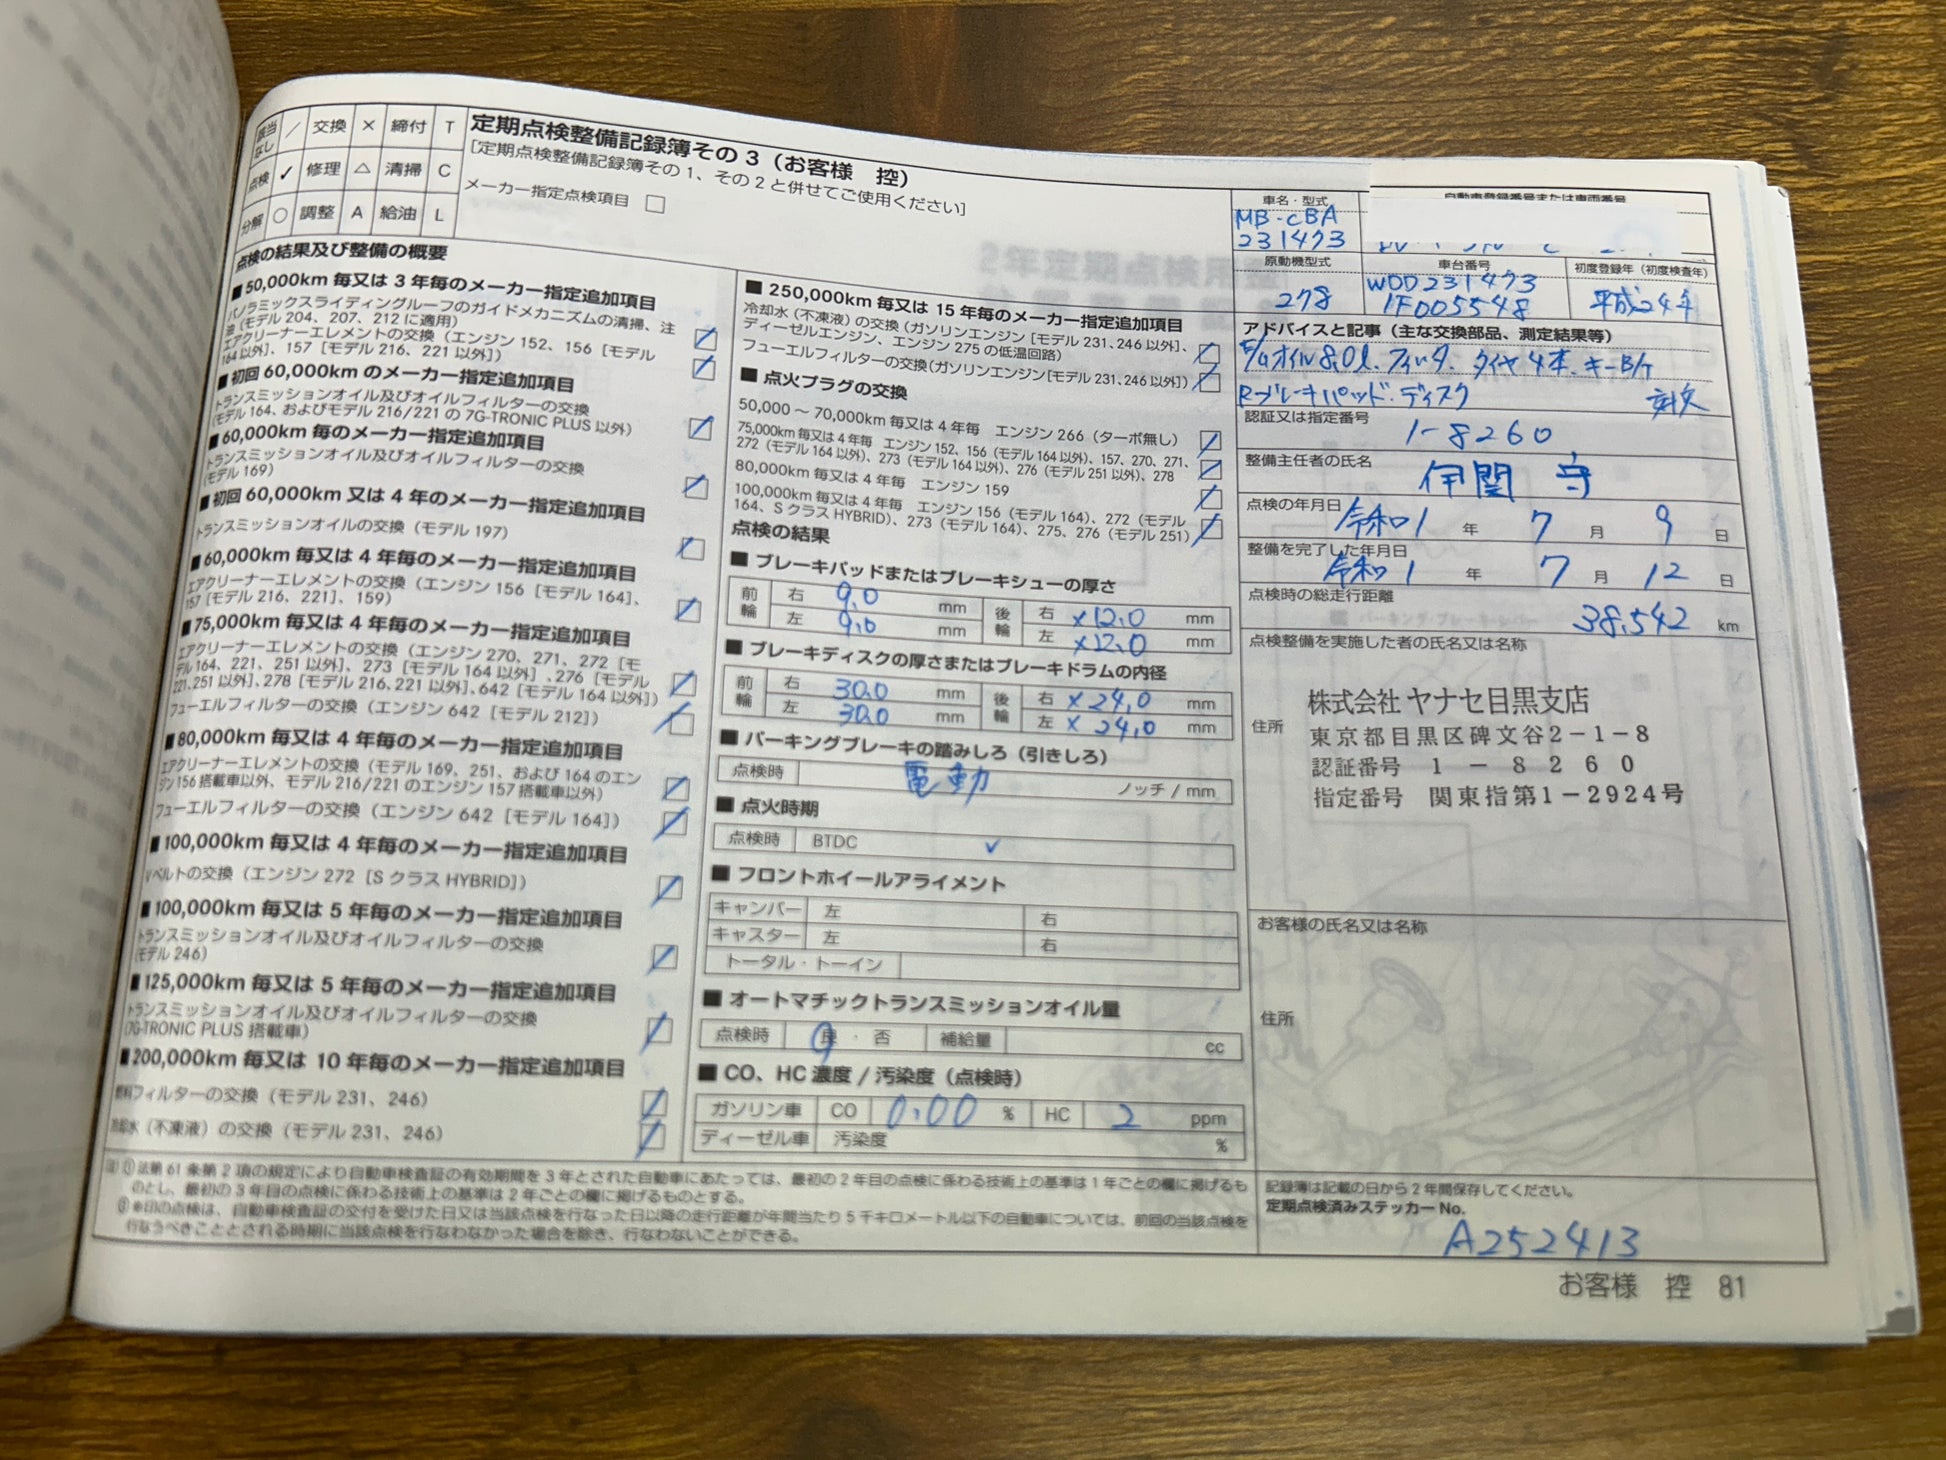 該当なし ／ 交換 × 締付 T
点検 ✓ 修理 △ 清掃 C
分解 ○ 調整 A 給油 L
定期点検整備記録簿その3（お客様 控）
［定期点検整備記録簿その1、その2と併せてご使用ください］
メーカー指定点検項目 □
点検の結果及び整備の概要
■50,000km 毎又は 3 年毎のメーカー指定追加項目
パノラミックスライディングルーフのガイドメカニズムの清掃、注
油（モデル 204、207、212 に適用）
エアクリーナーエレメントの交換（エンジン 152、156［モデル
164 以外］、157［モデル 216、221 以外］）
■初回 60,000km のメーカー指定追加項目
トランスミッションオイル及びオイルフィルターの交換
（モデル 164、およびモデル 216/221 の 7G-TRONIC PLUS 以外）
■60,000km 毎のメーカー指定追加項目
トランスミッションオイル及びオイルフィルターの交換
（モデル 169）
■初回 60,000km 又は 4 年のメーカー指定追加項目
トランスミッションオイルの交換（モデル 197）
■60,000km 毎又は 4 年毎のメーカー指定追加項目
エアクリーナーエレメントの交換（エンジン 156［モデル 164］、
157［モデル 216、221］、159）
■75,000km 毎又は 4 年毎のメーカー指定追加項目
エアクリーナーエレメントの交換（エンジン 270、271、272［モ
デル 164、221、251 以外］、273［モデル 164 以外］、276［モデル
221、251 以外］、278［モデル 216、221 以外］、642［モデル 164 以外］）
フューエルフィルターの交換（エンジン 642［モデル 212］）
■80,000km 毎又は 4 年毎のメーカー指定追加項目
エアクリーナーエレメントの交換（モデル 169、251、および 164 のエン
ジン 156 搭載車以外、モデル 216/221 のエンジン 157 搭載車以外）
フューエルフィルターの交換（エンジン 642［モデル 164］）
■100,000km 毎又は 4 年毎のメーカー指定追加項目
Vベルトの交換（エンジン 272［S クラス HYBRID］）
■100,000km 毎又は 5 年毎のメーカー指定追加項目
トランスミッションオイル及びオイルフィルターの交換
（モデル 246）
■125,000km 毎又は 5 年毎のメーカー指定追加項目
トランスミッションオイル及びオイルフィルターの交換
（7G-TRONIC PLUS 搭載車）
■200,000km 毎又は 10 年毎のメーカー指定追加項目
燃料フィルターの交換（モデル 231、246）
冷却水（不凍液）の交換（モデル 231、246）
■250,000km 毎又は 15 年毎のメーカー指定追加項目
冷却水（不凍液）の交換（ガソリンエンジン［モデル 231、246 以外］、
ディーゼルエンジン、エンジン 275 の低温回路）
フューエルフィルターの交換（ガソリンエンジン［モデル 231、246 以外］）
■点火プラグの交換
50,000 ～ 70,000km 毎又は 4 年毎 エンジン 266（ターボ無し）
75,000km 毎又は 4 年毎 エンジン 152、156（モデル 164 以外）、157、270、271、
272（モデル 164 以外）、273（モデル 164 以外）、276（モデル 251 以外）、278
80,000km 毎又は 4 年毎 エンジン 159
100,000km 毎又は 4 年毎 エンジン 156（モデル 164）、272（モデル
164、S クラス HYBRID）、273（モデル 164）、275、276（モデル 251）
点検の結果
■ブレーキパッドまたはブレーキシューの厚さ
前輪 右 9.0 mm 後輪 右 ×12.0 mm
左 9.0 mm 左 ×12.0 mm
■ブレーキディスクの厚さまたはブレーキドラムの内径
前輪 右 30.0 mm 後輪 右 × 24.0 mm
左 30.0 mm 左 × 24.0 mm
■パーキングブレーキの踏みしろ（引きしろ）
点検時 電動 ノッチ / mm
■点火時期
点検時 BTDC ✓
■フロントホイールアライメント
キャンバー 左 右
キャスター 左 右
トータル・トーイン
■オートマチックトランスミッションオイル量
点検時 良・否 補給量 cc
■CO、HC 濃度 / 汚染度（点検時）
ガソリン車 CO 0.00 % HC 2 ppm
ディーゼル車 汚染度 %
車名・型式
MB-CBA
231473
自動車登録番号または車両番号
原動機型式
278
車台番号
WDD231473
1F005548
初度登録年（初度検査年）
平成24年
アドバイスと記事（主な交換部品、測定結果等）
E/Gオイル8.0ℓ. フィルタ. タイヤ4本. キーB/T
Rブレーキパッド・ディスク 交換
認証又は指定番号
1-8260
整備主任者の氏名
伊関 守
点検の年月日 令和1 年 7 月 9 日
整備を完了した年月日
令和1 年 7 月 12 日
点検時の総走行距離
38,542 km
点検整備を実施した者の氏名又は名称
株式会社 ヤナセ目黒支店
住所 東京都目黒区碑文谷2－1－8
認証番号 1－8260
指定番号 関東指第1－2924号
お客様の氏名又は名称
住所
注 ① 法第 61 条第 2 項の規定により自動車検査証の有効期間を 3 年とされた自動車にあたっては、最初の 2 年目の点検に係わる技術上の基準は 1 年ごとの欄に掲げるも
のとし、最初の 3 年目の点検に係わる技術上の基準は 2 年ごとの欄に掲げるものとする。
※印の点検は、自動車検査証の交付を受けた日又は当該点検を行なった日以降の走行距離が年間当たり 5 千キロメートル以下の自動車については、前回の当該点検を
行なうべきこととされる時期に当該点検を行なわなかった場合を除き、行なわないことができる。
記録簿は記載の日から 2 年間保存してください。
定期点検済みステッカー No.
A252413
お客様 控 81